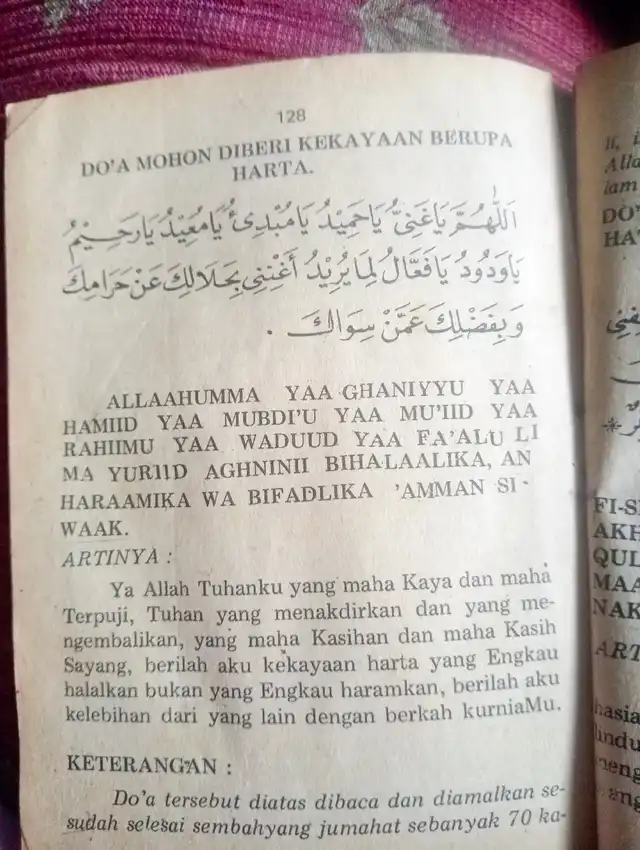 128
DO'A MOHON DIBERI KEKAYAAN BERUPA
HARTA.
اَللّٰهُمَّ يَاغَنِيُّ يَاحَمِيْدُ يَامُبْدِئُ يَامُعِيْدُ يَارَحِيْمُ
يَاوَدُوْدُ يَافَعَّالُ لِمَا يُرِيْدُ أَغْنِنِى بِحَلَالِكَ عَنْ حَرَامِكَ
وَبِفَضْلِكَ عَمَّنْ سِوَاكَ .
ALLAAHUMMA YAA GHANIYYU YAA
HAMIID YAA MUBDI'U YAA MU'IID YAA
RAHIIMU YAA WADUUD YAA FA'ALU LI
MA YURIID AGHNINII BIHALAALIKA, AN
HARAAMIKA WA BIFADLIKA 'AMMAN SI-
WAAK.
ARTINYA :
Ya Allah Tuhanku yang maha Kaya dan maha
Terpuji, Tuhan yang menakdirkan dan yang me-
ngembalikan, yang maha Kasihan dan maha Kasih
Sayang, berilah aku kekayaan harta yang Engkau
halalkan bukan yang Engkau haramkan, berilah aku
kelebihan dari yang lain dengan berkah kurniaMu.
KETERANGAN :
Do'a tersebut diatas dibaca dan diamalkan se-
sudah selesai sembahyang jumahat sebanyak 70 ka-
Alla
lam
DO'
HA
FI-S
AKH
QUL
MAA
NAK
ART
hasia